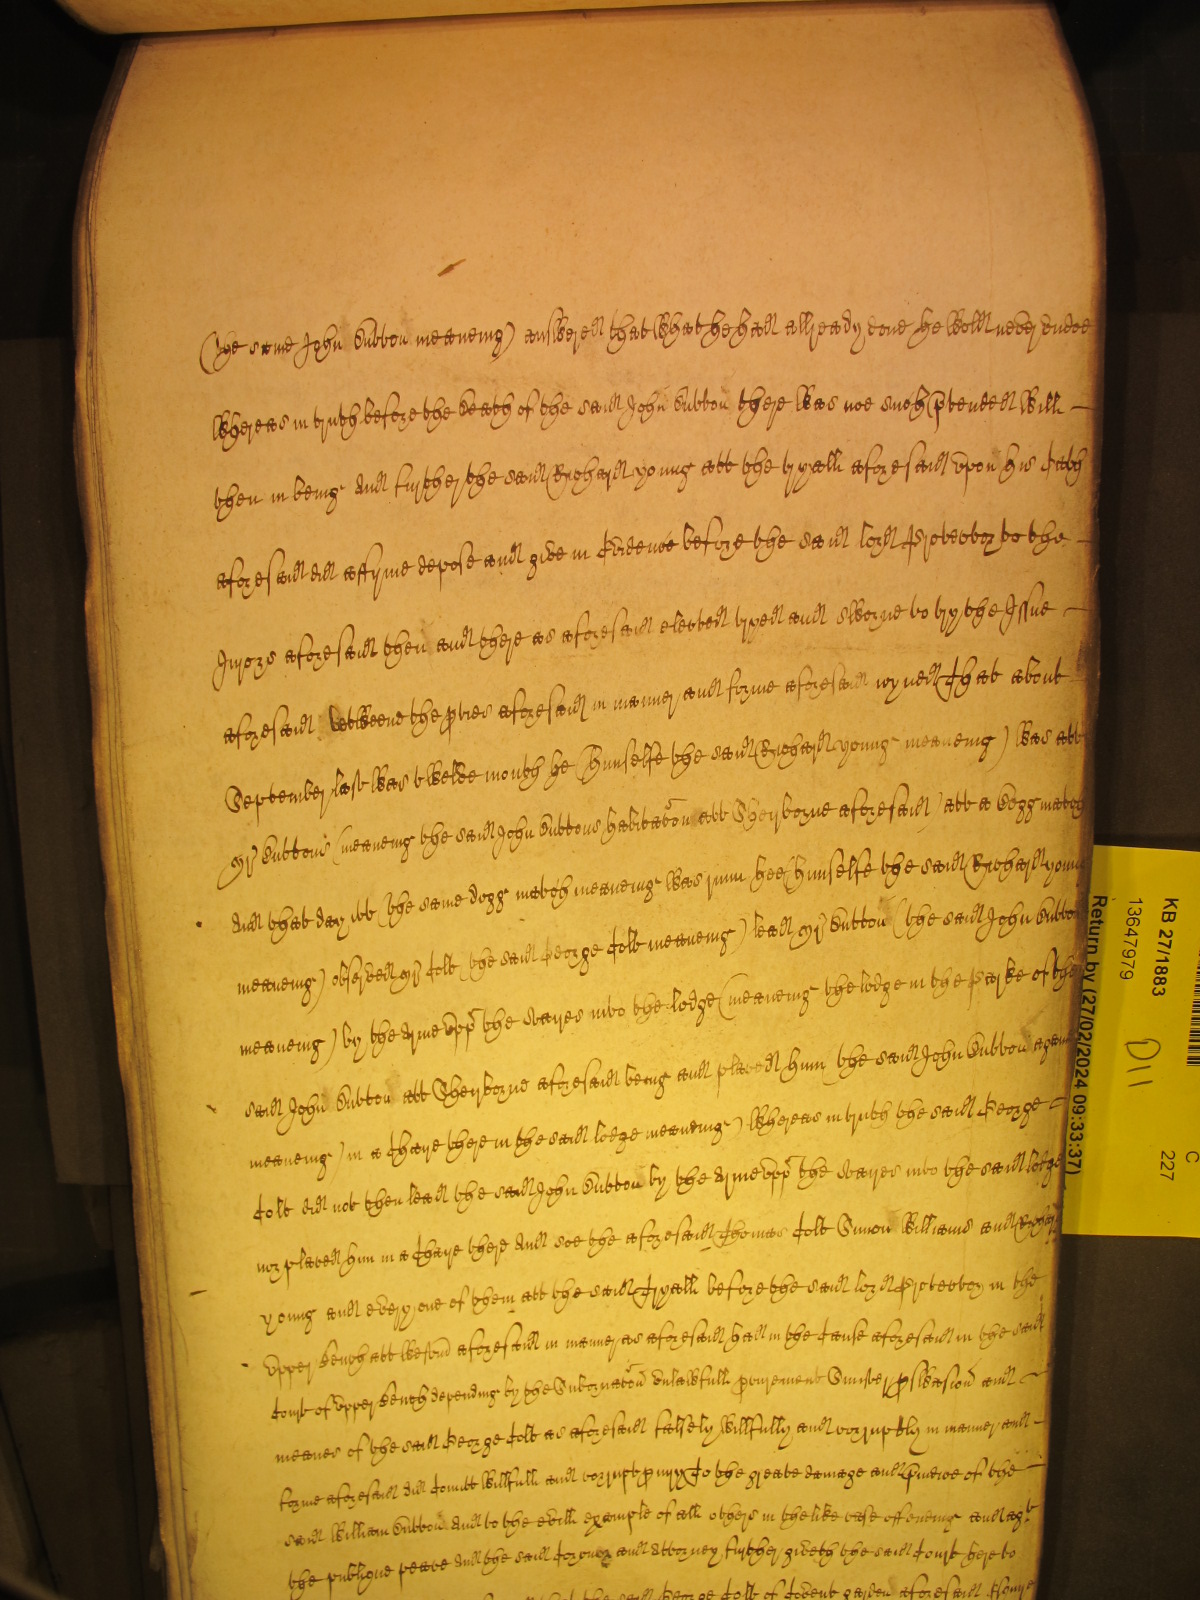 (the same John Dutton meaneing) answered that what he had allready done he wold never undoe
Whereas in truth before the death of the said John Dutton there was noe such p̱tended Will
then in being And further the said Richard Young att the tryall aforesaid upon his Oath
aforesaid did affirme depose and give in Evidence before the said lord Protector to the
Jurors aforesaid then and there as aforesaid elected tryed and sworne to try the Issue
aforesaid betweene the p̱ties aforesaid in manner and forme aforesaid ioyned That about
September last was twelve month he (himselfe the said Richard Young meaneing) was att
Mr Duttons (meaneing the said John Duttons habitac̃on att Sherborne aforesaid) att a Dogg match
And that day itt (the same dogg match meaneing) was runn hee (himselfe the said Richard Young
meaneing) observed Mr Colt (the said George Colt meaneing) lead Mr Dutton (the said John Dutton
meaneing) by the Arme upp the staires into the lodge (meaneing the lodge in the Parke of the
said John Dutton att Sherborne aforesaid being and placed him the said John Dutton again
meaneing) in a Chaire there in the said lodge meaneing) Whereas in truth the said George
Colt did not then lead the said John Dutton by the Arme upp the staires into the said lodge
nor placed him in a Chaire there And soe the aforesaid Thomas Colt Simon Williams and Richard
Young and every one of them att the said Tryall before the said lord Protector in the
Upper Bench att Westm̃ aforesaid in manner as aforesaid had in the Cause aforesaid in the said
Court of Upper Bench depending by the Subornac̃on unlawfull p̱curement Sinister p̱swasion and
meanes of the said George Colt as aforesaid falsely Willfully and corruptly in manner and
forme aforesaid did Comitt Willfull and corrupt p̱iury To the greate damage and p̱iudice of the
said William Dutton And to the evill example of all others in the like case offending and agt
the publique peace And the said Coroner and Attorney further giveth the said Court here to
that the said George Colt of Covent Garden aforesaid Esquire
KB 27/1883
13647979
D11
C
227
Return by (27/02/2024 09:33:37)